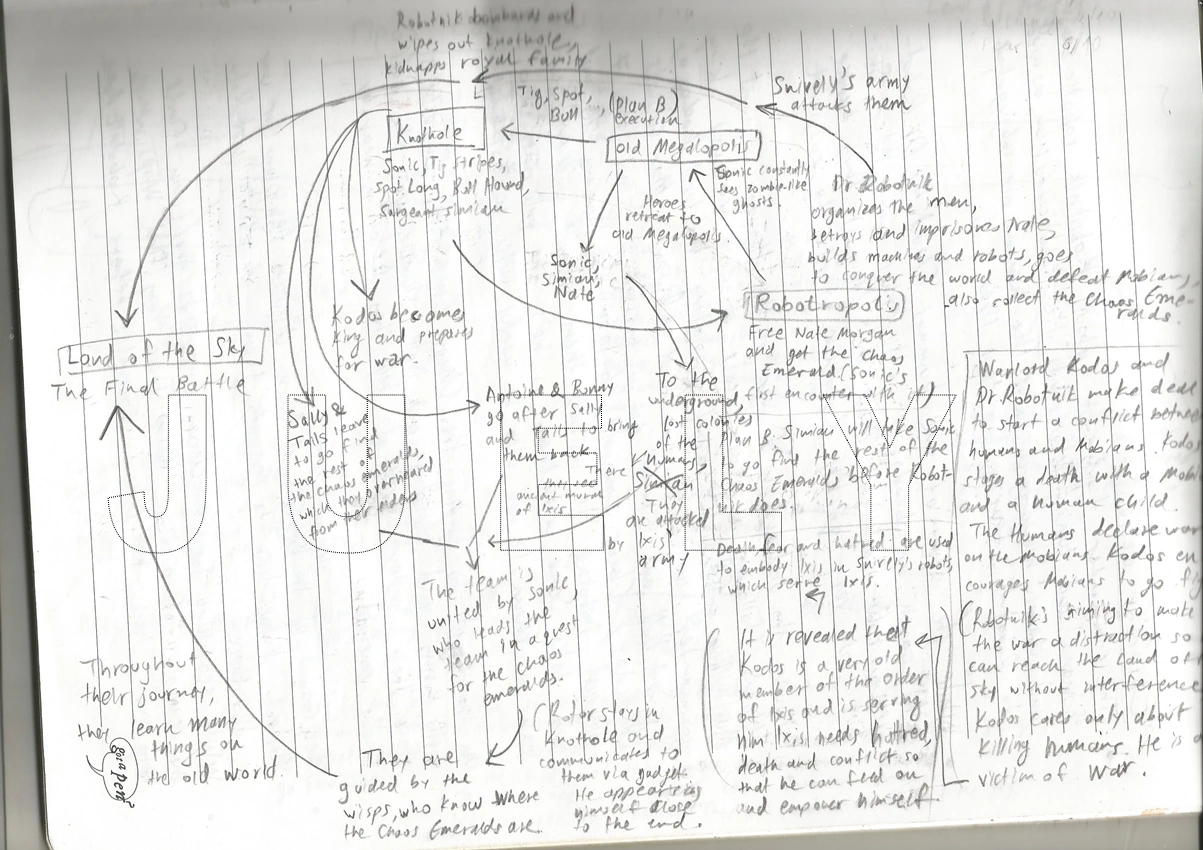 Robotnik bombards and
wipes out Knothole,
kidnapps royal family
Snively's army
attacks them
Tig, Spot,
Bull
(Plan B)
execution
Knothole
old Megalopolis
Sonic, Tig stripes,
Spot Long, Bull Hound,
Sargeant Simian
Sonic constantly
sees zombie-like
ghosts.
Heroes
retreat to
old Megalopolis.
Dr. Robotnik
organizes the men,
betrays and imprisones Nate,
builds machines and robots, goes
to conquer the world and defeat Mobians,
also collect the Chaos Eme-
ralds.
Sonic,
Simian,
Nate
Robotropolis
Free Nate Morgan
and get the Chaos
Emerald (Sonic's
first encounter with it)
Plan B. Simian will take Sonic
to go find the rest of the
Chaos Emeralds before Robot-
nik does.
Kodos becomes
King and prepares
for war.
Land of the Sky
The Final Battle
Sally &
Tails leave
to go find
the rest of
the chaos emeralds,
which they overheard
from their elders
Antoine & Bunny
go after Sally
and Tails to bring
them back
There
they see
ancient mural
of Ixis
To the
underground,
lost colonies
of the
humans,
Simian
They
are attacked
by Ixis'
army
Death, fear and hatred are used
to embody Ixis in Snively's robots,
which serve Ixis.
Warlord Kodos and
Dr. Robotnik make deal
to start a conflict betwe
humans and Mobians. Kodos
stages a death with a Mob
and a human child.
The Humans declare war
on the Mobians. Kodos en
courages Mobians to go f
(Robotnik's aiming to make
the war a distraction so
can reach the Land of
sky without interference
Kodos cares only about
killing humans. He is a
victim of war.
The team is
united by Sonic,
who leads the
team in a quest
for the chaos
emeralds.
It is revealed that
Kodos is a very old
member of the order
of Ixis and is serving
him. Ixis needs hatred,
death and conflict so
that he can feed on
and empower himself.
Throughout
their journey,
they learn many
things on
the old world.
They are
guided by the
wisps, who know where
the Chaos Emeralds are.
(Rotor stays in
Knothole and
communicates to
them via gadget.
He appears
himself close
to the end.
JULEY